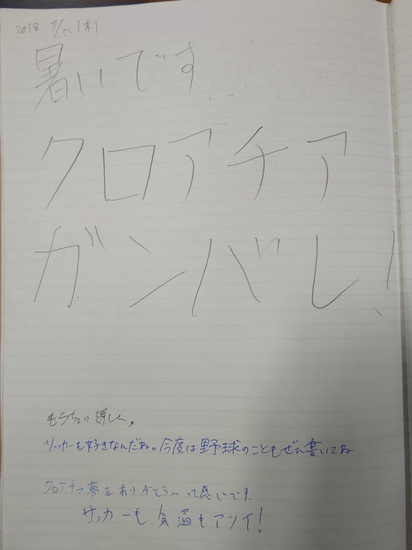 2018 7/12(木)
暑いです
クロアチア
ガンバレ!
もうちょい詳しく。
サッカーも好きなんだね。今度は野球のこともぜひ書いてね
クロアチア夢をありがとうって感じです。
サッカーも気温もアツイ!